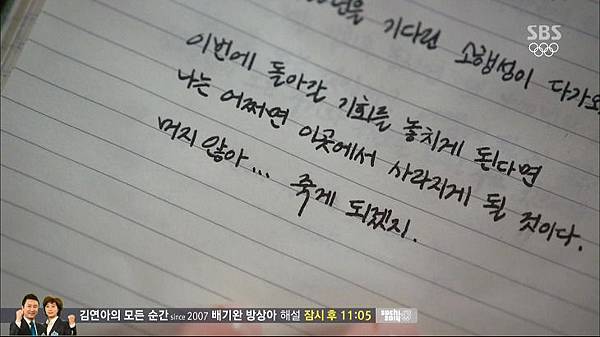 SBS
기다린 소행성이 다가오
이번에 돌아갈 기회를 놓치게 된다면
나는 어쩌면 이곳에서 사라지게 될 것이다.
머지 않아... 죽게 되겠지.
김연아의 모든 순간 since 2007 배기완 방상아 해설 잠시 후 11:05
sochi 2014